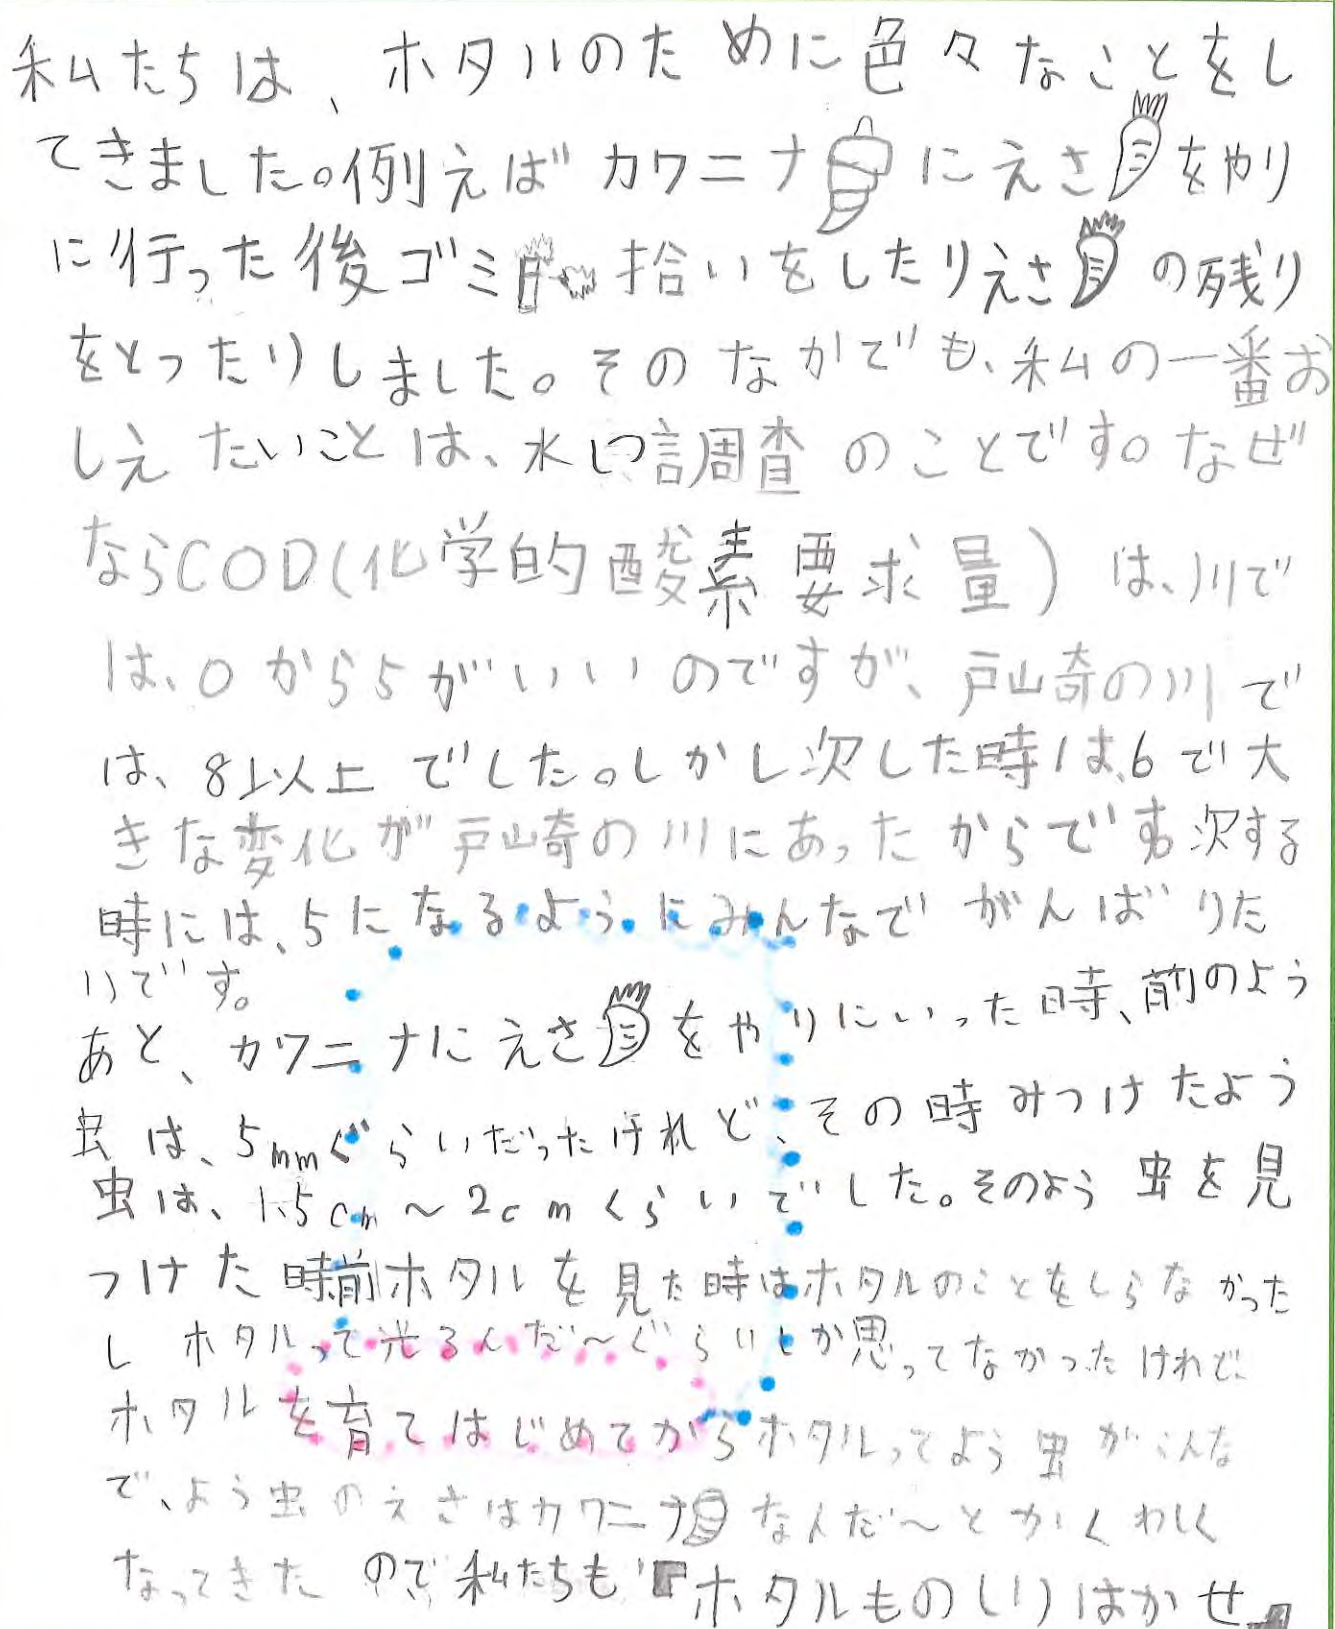 私たちは、ホタルのために色々なことをし
てきました。例えばカワニナにえさをやり
に行った後ゴミ拾いをしたりえさの残り
をとったりしました。そのなかでも、私の一番お
しえたいことは、水口調査のことです。なぜ
ならCOD(化学的酸素要求量)は、川で
は、0から5がいいのですが、戸山奇の川で
は、8以上でした。しかし次した時は、6で大
きな変化が戸山奇の川にあったからです。次する
時には、5になるようにみんなでがんばりた
いです。
あと、カワニナにえさをやりにいった時、前のよう
虫は、5mmぐらいだったけれど、その時みつけたよう
虫は、1.5cm～2cmくらいでした。そのよう虫を見
つけた時前ホタルを見た時はホタルのことをしらなかった
しホタルって光るんだ～ぐらいしか思ってなかったけれど、
ホタルを育てはじめてからホタルってよう虫がこんな
で、よう虫のえさはカワニナなんだ～とかくわしく
なってきたので私たちも『ホタルものしりはかせ』